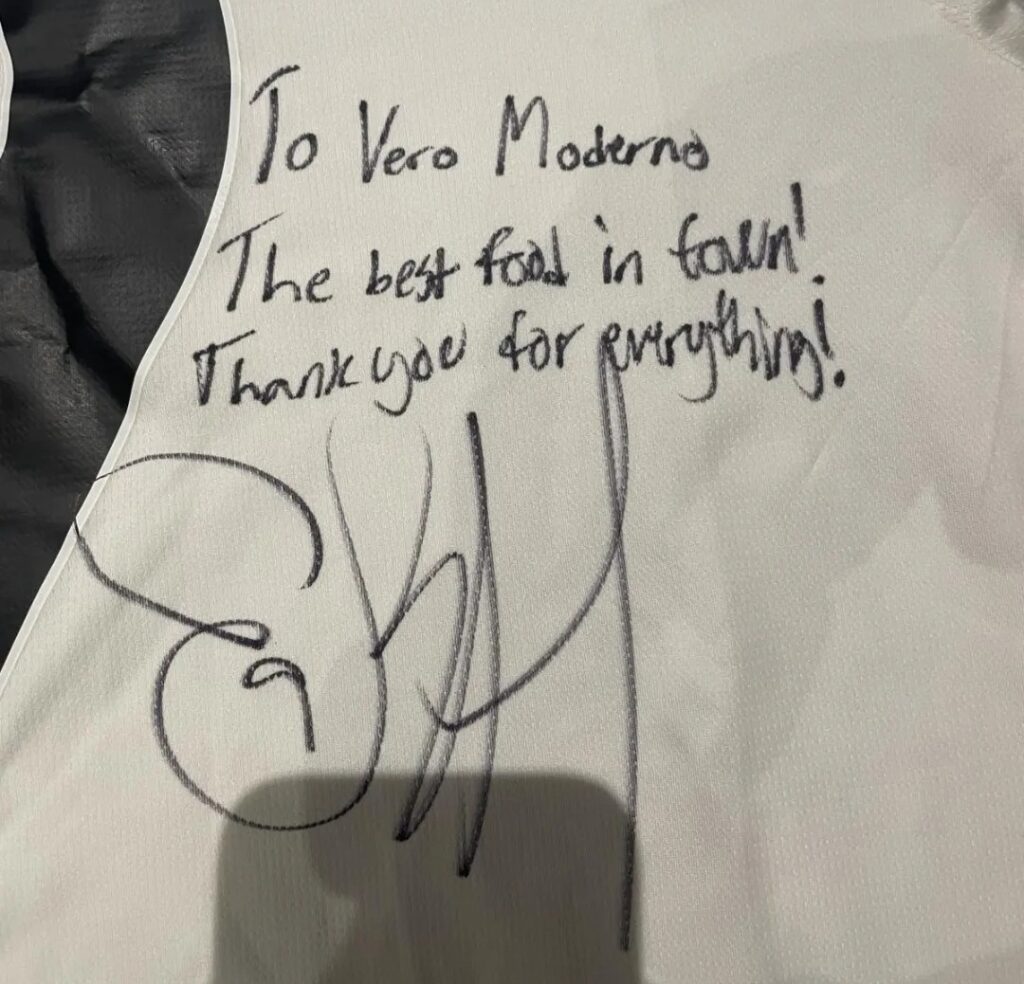 To Vero Moderno
The best food in town!
Thank you for everything!
9